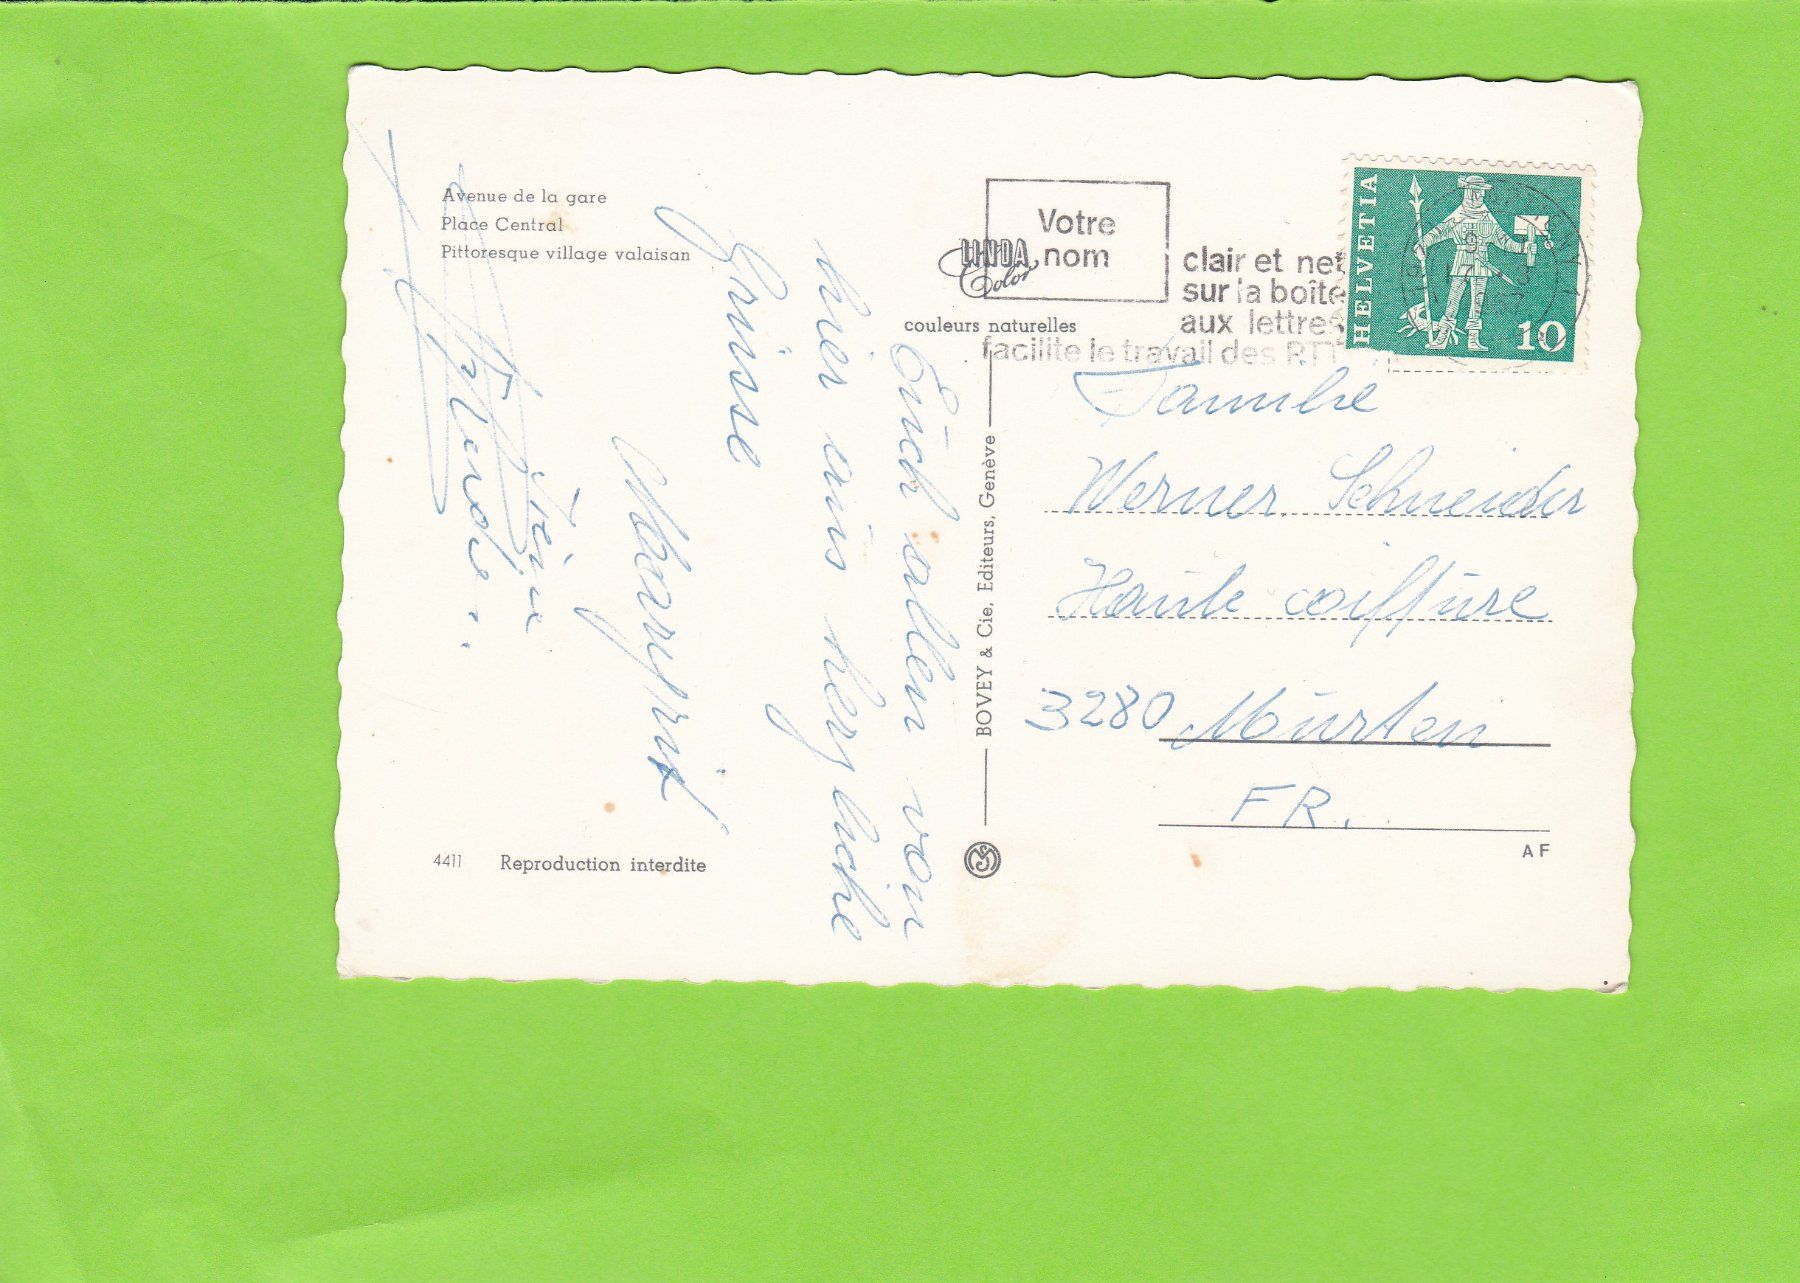 Avenue de la gare
Place Central
Pittoresque village valaisan
Euch allen von
hier aus herzliche
Grüsse
Margrit
4411 Reproduction interdite
LINDA
Color
couleurs naturelles
BOVEY & Cie, Editeurs, Genève
Votre
nom
clair et net
sur la boîte
aux lettres
facilite le travail des PTT
HELVETIA
10
Familie
Werner Schneider
Haute coiffure
3280 Murten
FR.
AF